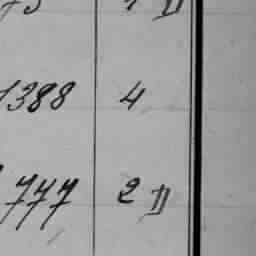 1388 4
777 2 D